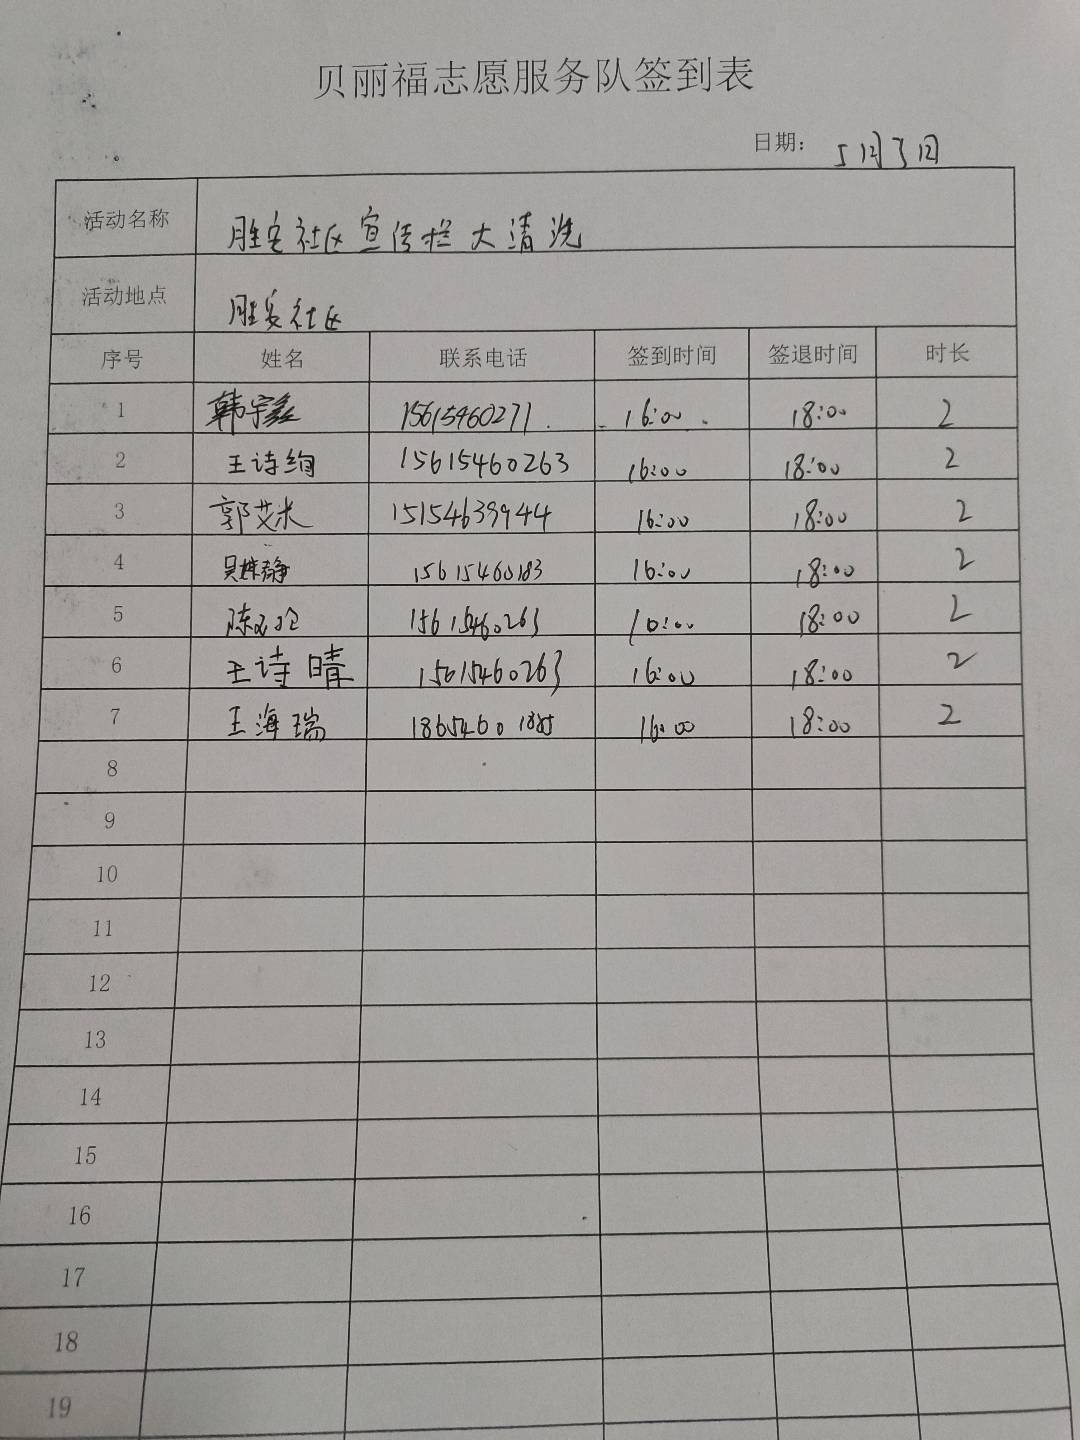 贝丽福志愿服务队签到表
日期： 5月3日
活动名称 胜安社区宣传栏大清洗
活动地点 胜安社区
序号 姓名 联系电话 签到时间 签退时间 时长
1 韩宇鑫 15615460271 16:00 18:00 2
2 王诗绚 15615460263 16:00 18:00 2
3 郭艾米 15154639944 16:00 18:00 2
4 吴姝静 15615460183 16:00 18:00 2
5 陈 15615460263 16:00 18:00 2
6 王诗晴 15615460263 16:00 18:00 2
7 王海瑞 18654601885 16:00 18:00 2
8
9
10
11
12
13
14
15
16
17
18
19